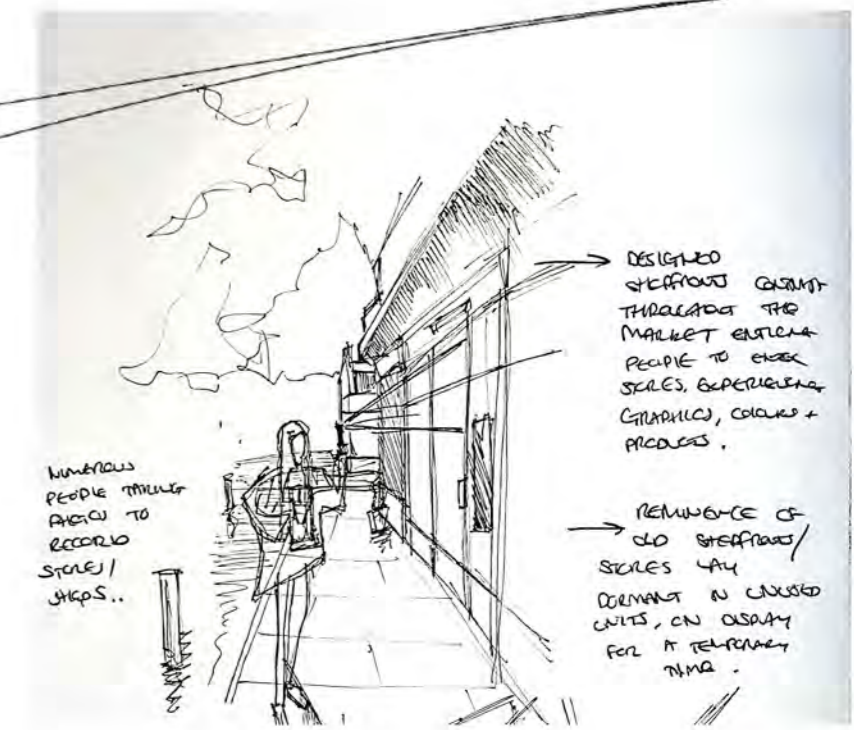 NUMEROUS
PEOPLE TAKING
PHOTOS TO
RECORD
STORES/
SHOPS..
DESIGNED
SHOPFRONTS CONTRAST
THROUGHOUT THE
MARKET ENTICING
PEOPLE TO ENTER
STORES, EXPERIENCING
GRAPHICS, COLOURS +
PRODUCTS.
REMINENCE OF
OLD SHOPFRONTS/
STORES LAY
DORMANT IN UNUSED
UNITS, ON DISPLAY
FOR A TEMPORARY
TIME.